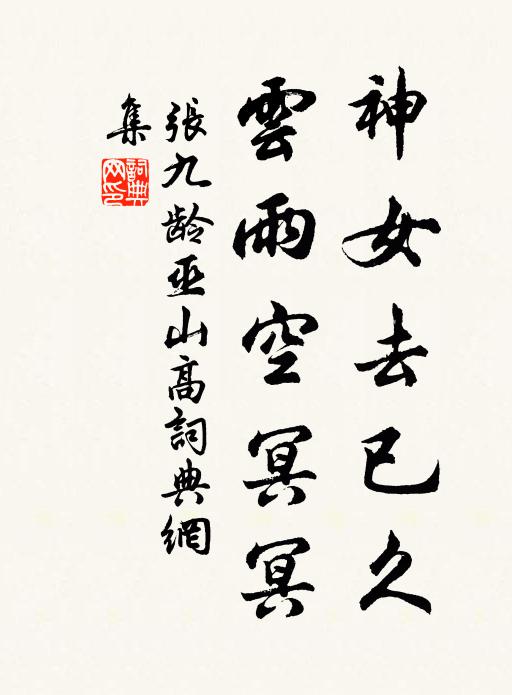 神女去已久
雲雨空冥冥
張九齡巫山高詞典網
集
詞典
网印